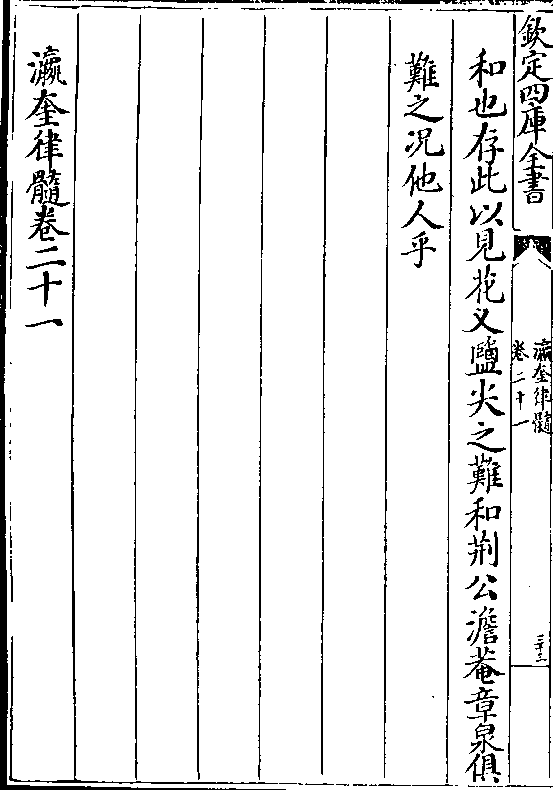 欽定四庫全書
瀛奎律髓
卷二十一
三十三
和也存此以見花义鹽尖之難和荆公澹菴章泉俱
難之况他人乎
瀛奎律髓卷二十一